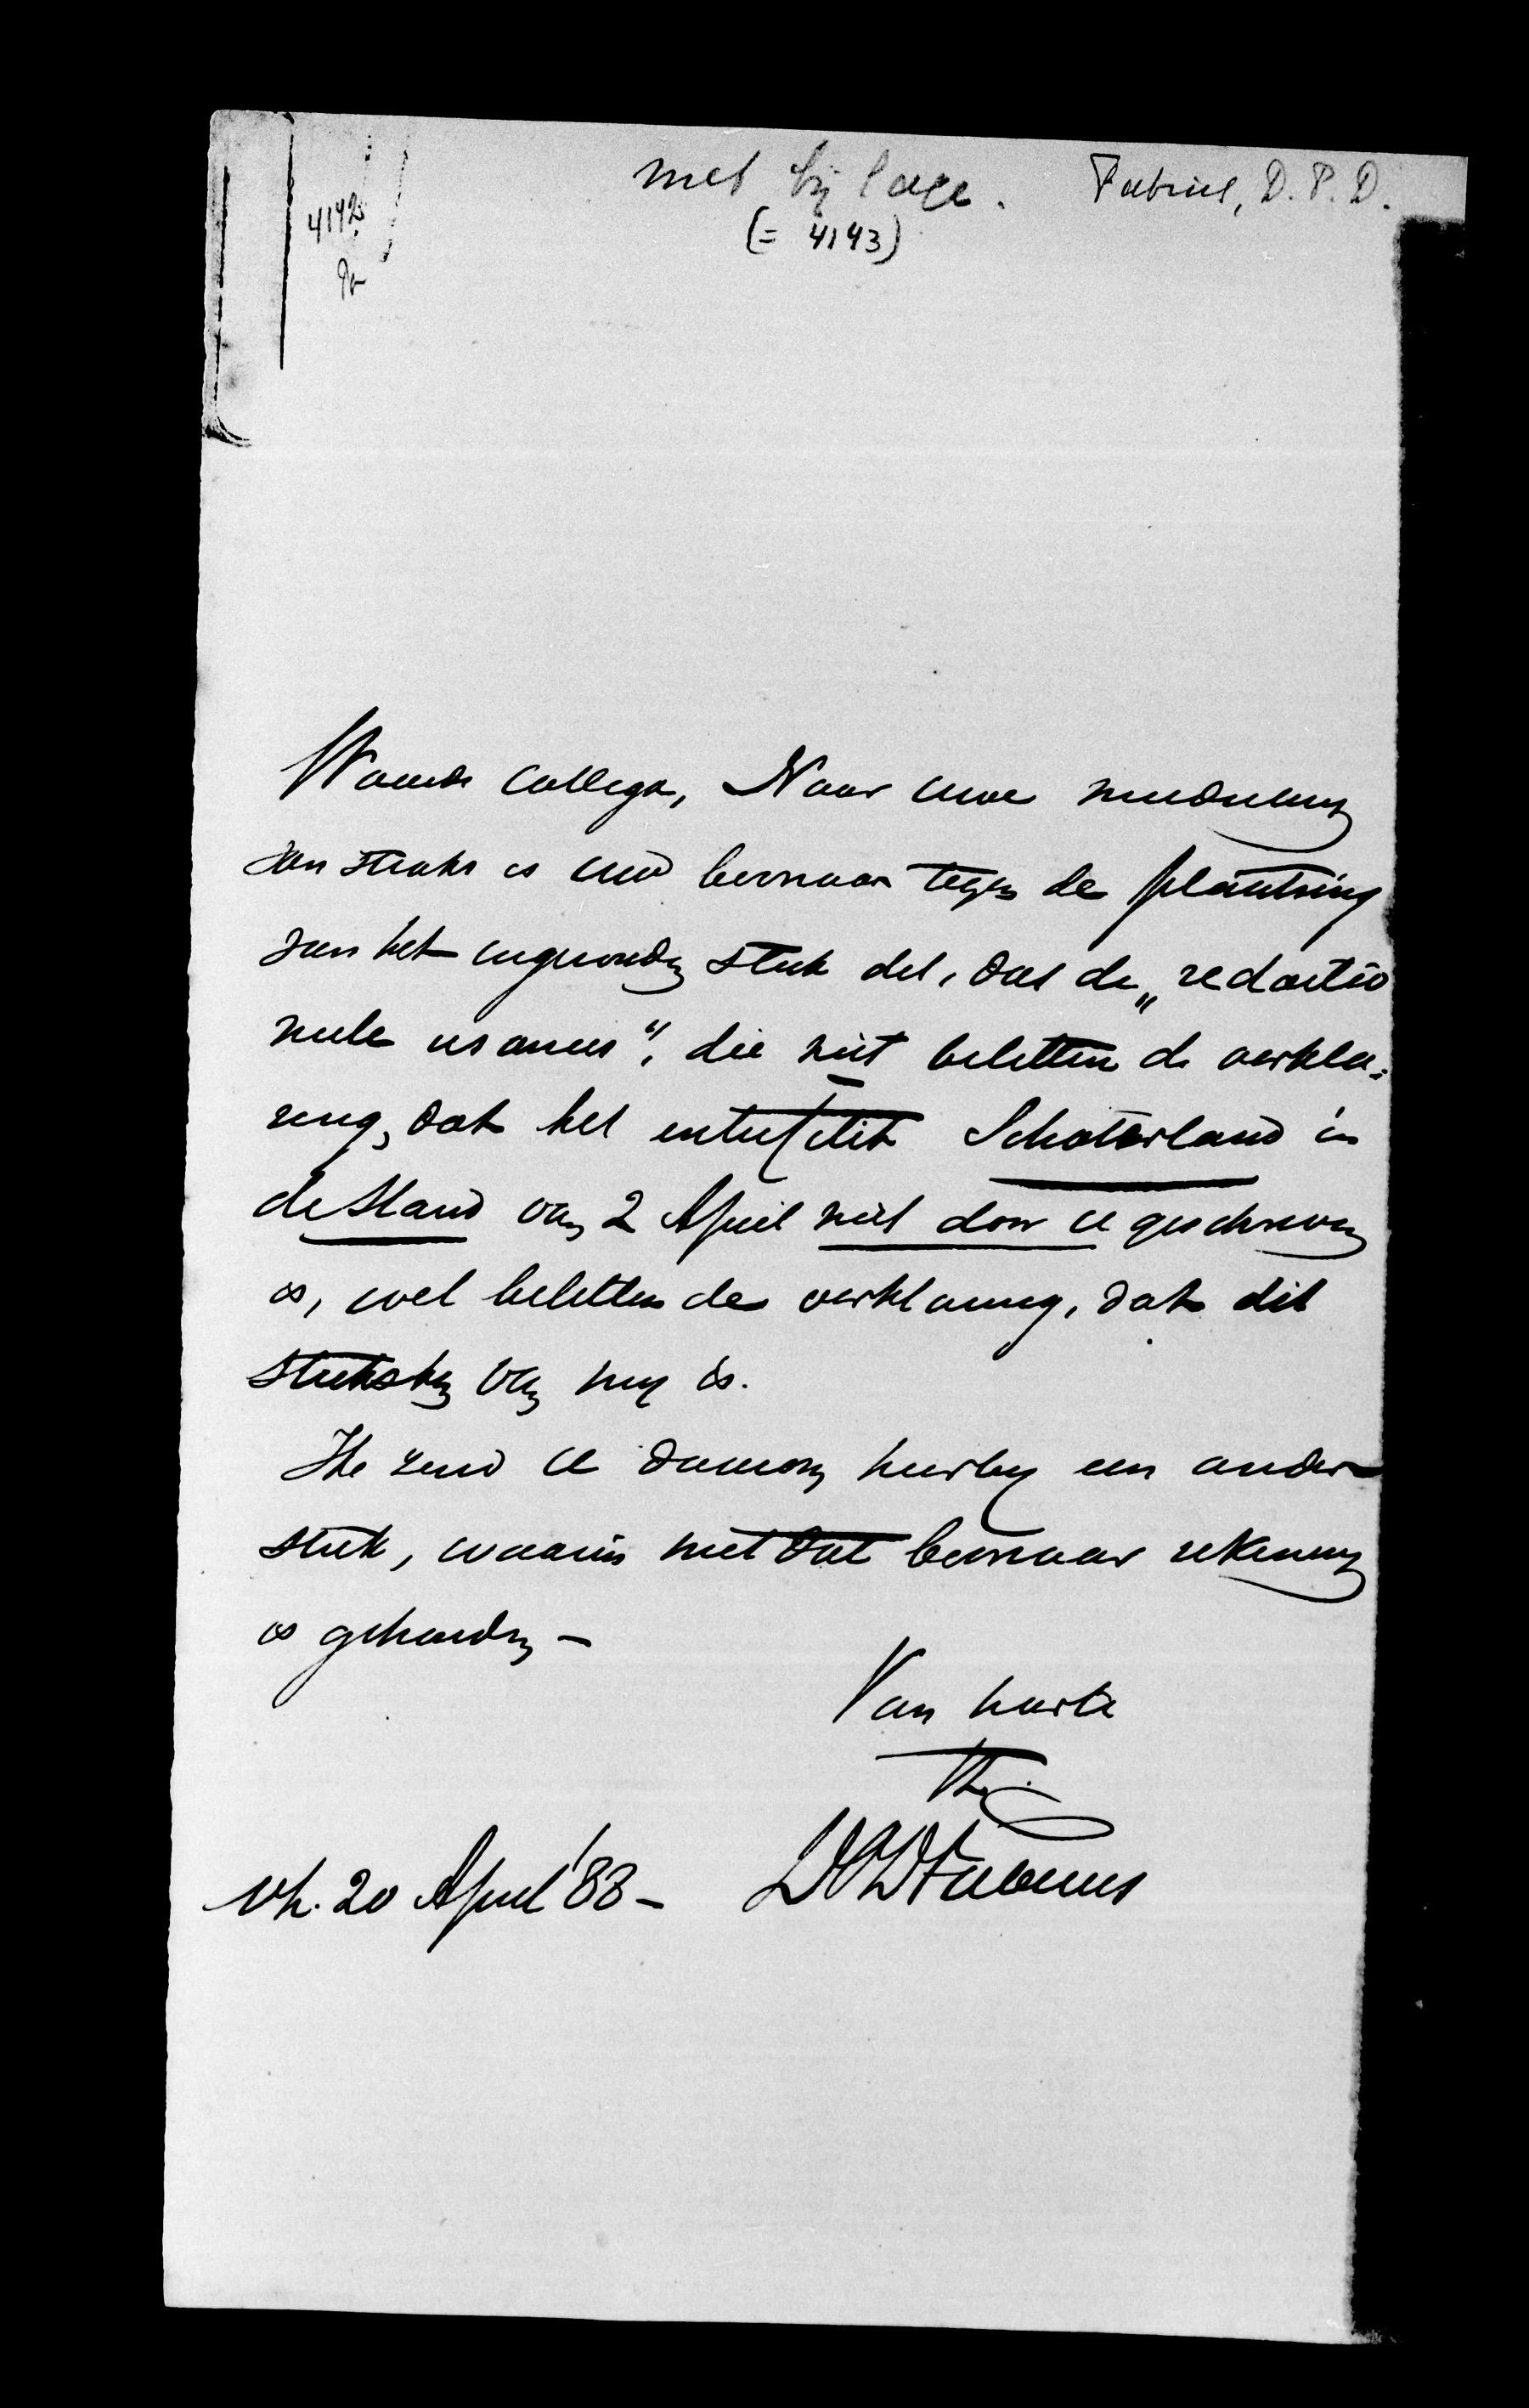 met bijlage. Fabius, D.P.D.
4142
(= 4143)
Waarde Collega, Naar uwe mededeeling
van straks is uw bezwaar tegen de plaatsing
van het ingezonden stuk dit, dat de „redactio
neele usances", die niet beletten de verkla=
ring, dat het entrefilet Schoterland in
de Stand van 2 April niet door U geschreven
is, wel beletten de verklaring, dat dit
stukske van mij is.
Ik zend U daarom hierbij een ander
stuk, waarin met dat bezwaar rekening
is gehouden –
Van harte
t.t.
DPDFabius
Vh. 20 April '88 –